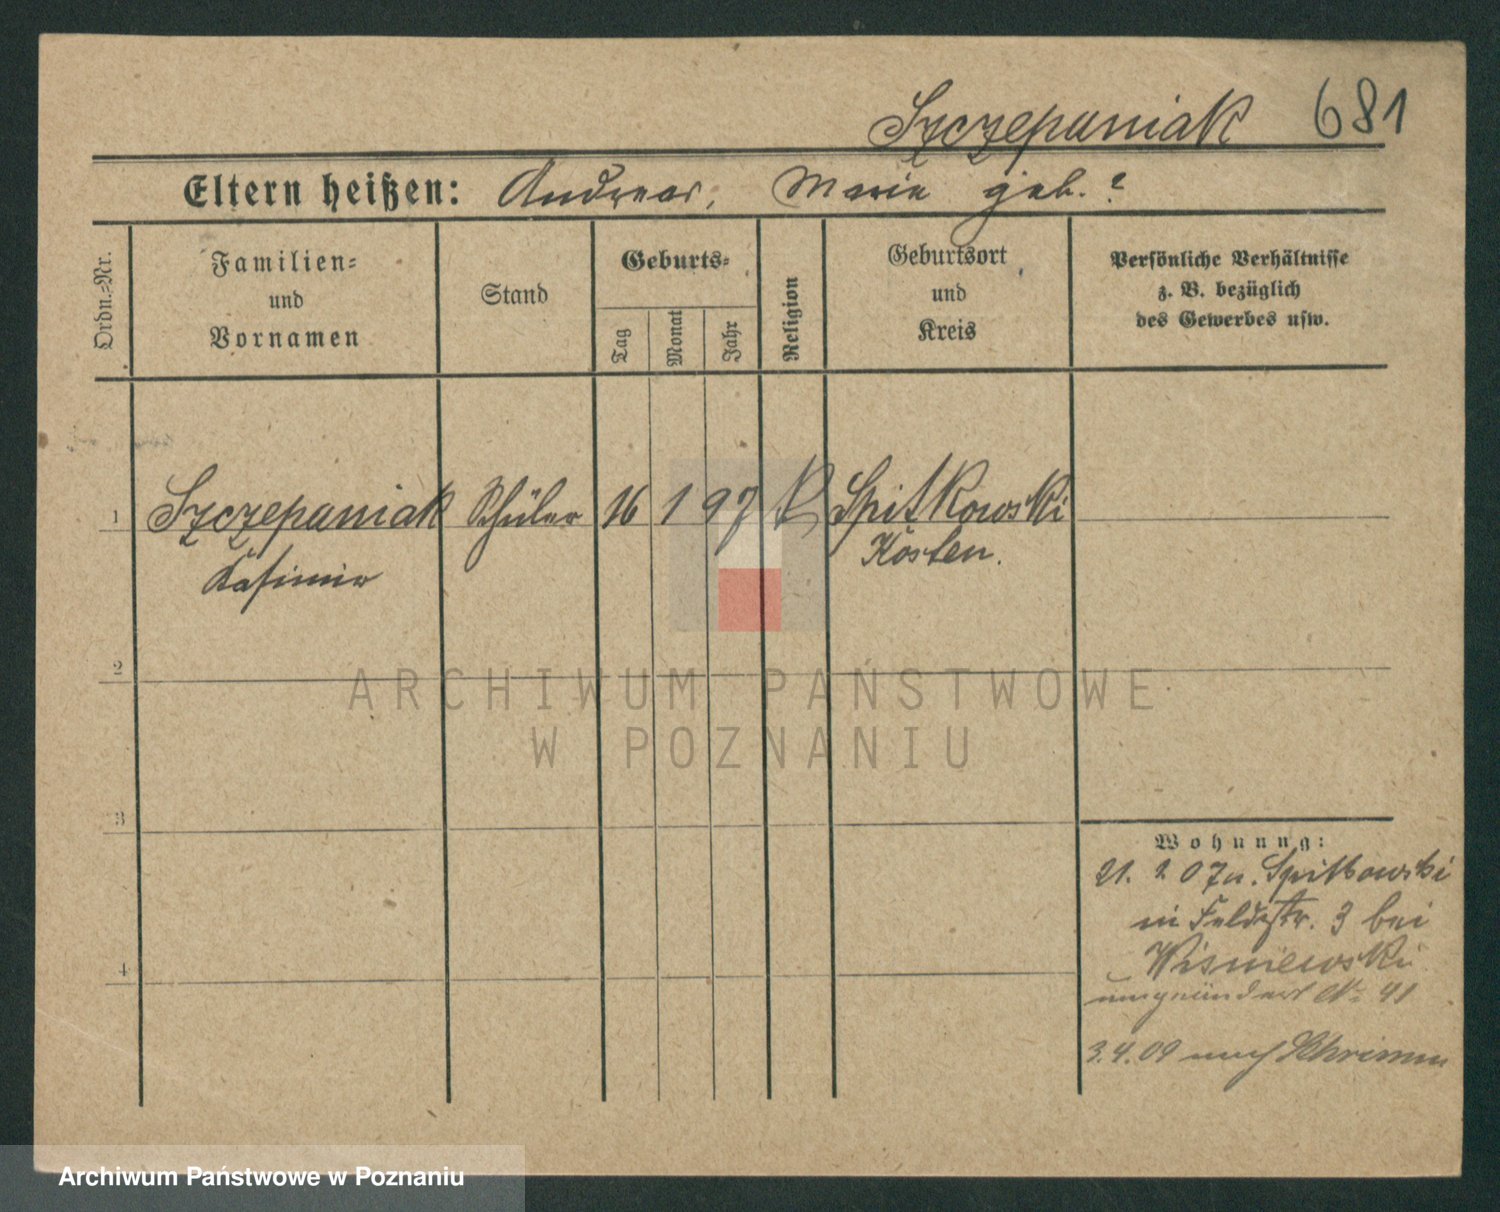 Szczepaniak 681
Eltern heißen: Andreas, Marie geb. ?
Ordn.-Nr.
Familien-
und
Vornamen
Stand
Geburts-
Tag
Monat
Jahr
Religion
Geburtsort
und
Kreis
Persönliche Verhältnisse
z. B. bezüglich
des Gewerbes usw.
1 Szczepaniak Schüler 16 1 97 K Spitkowski
Kasimir Kosten.
2
3
4
Wohnung:
21. 2 07 v. Spitkowski
in Feldstr. 3 bei
Wisniewski
umgeändert No 41
3.4.09 nach Schrimm
ARCHIWUM PAŃSTWOWE
W POZNANIU
Archiwum Państwowe w Poznaniu